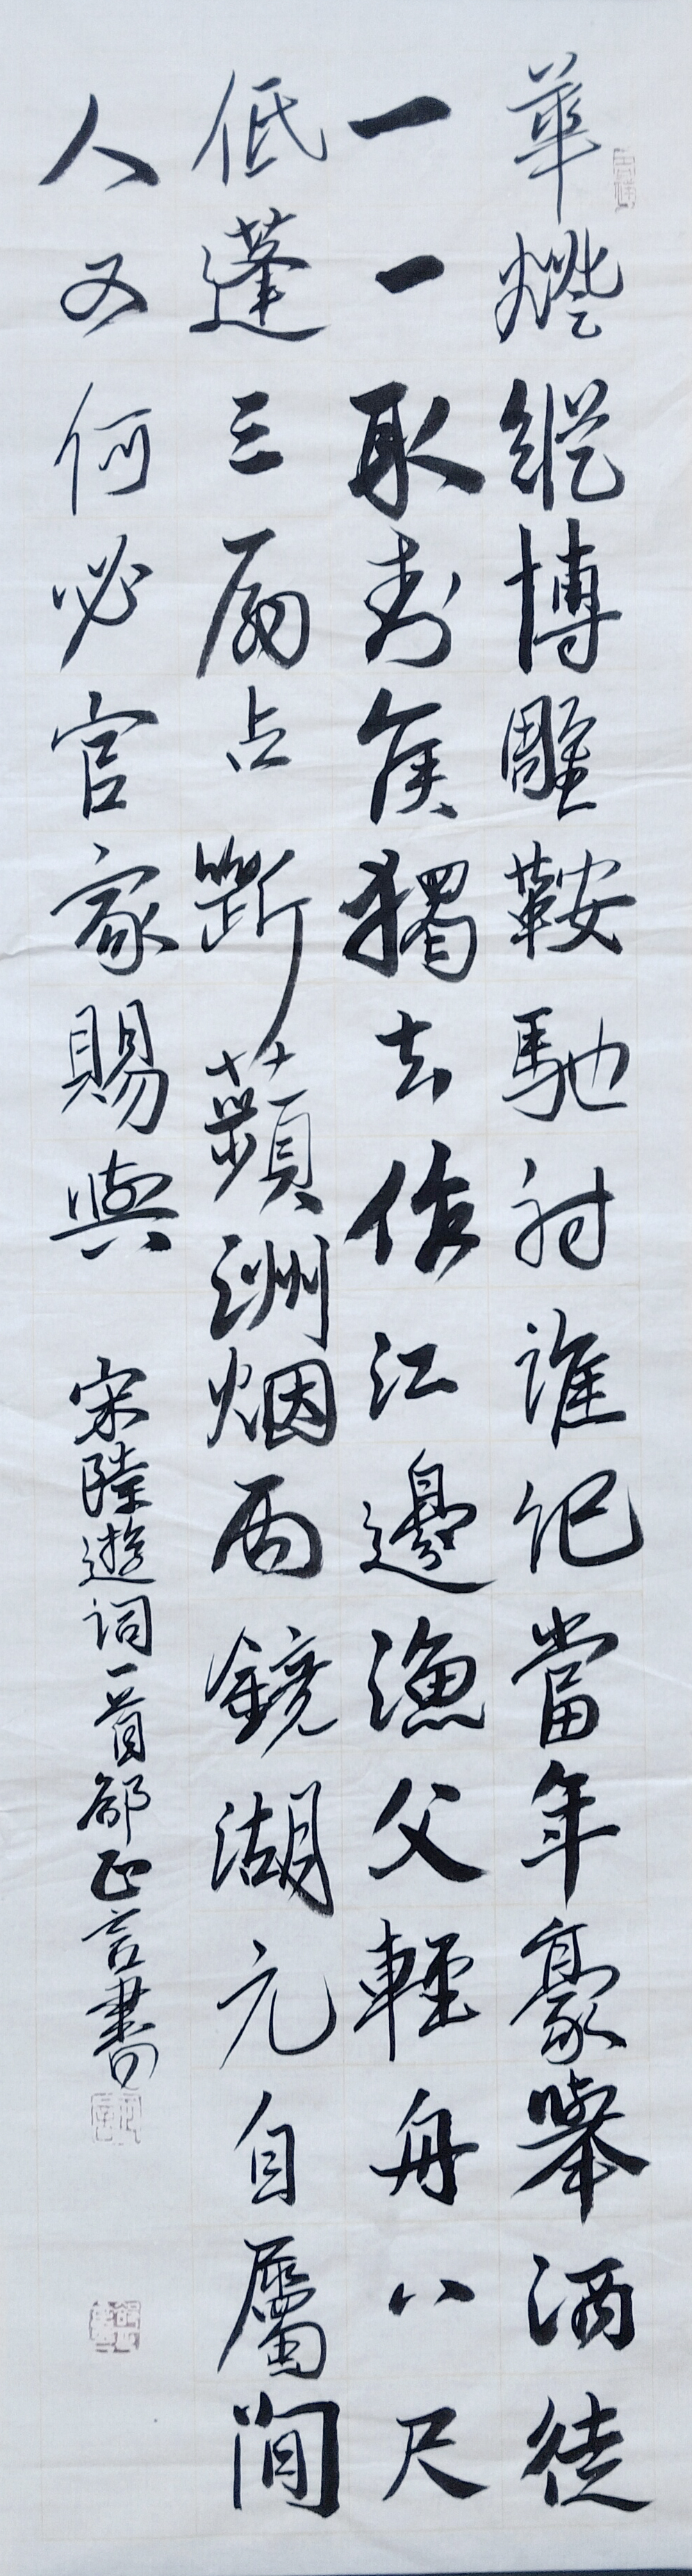 華燈縱博雕鞍馳射誰記當年豪舉酒徒
一一取封侯獨去作江邊漁父輕舟八尺
低蓬三扇占斷蘋洲烟雨鏡湖元自屬閒
人又何必官家賜與
宋陸遊詞一首郁正言書